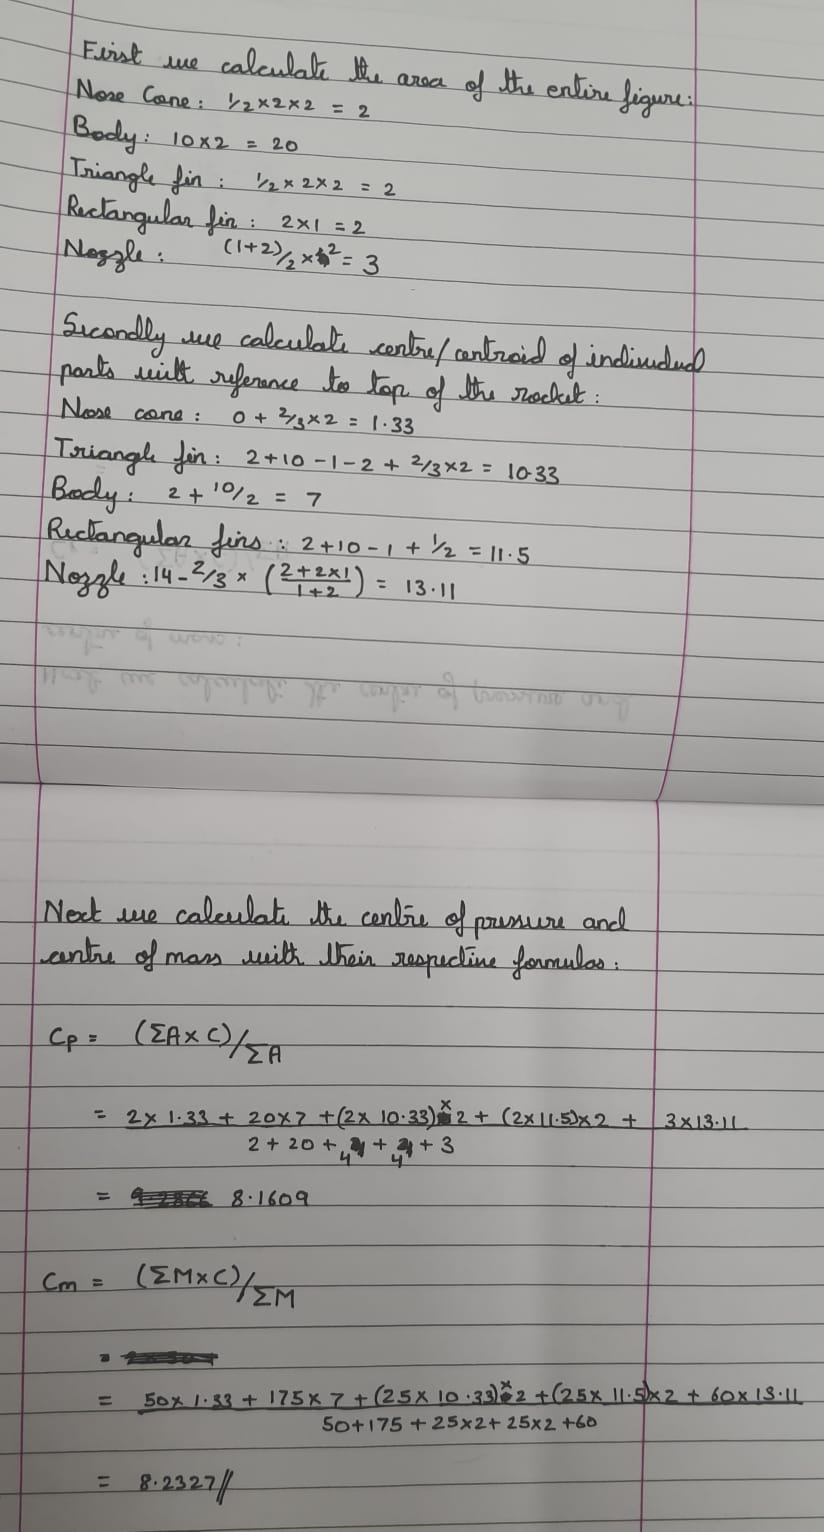 First we calculate the area of the entire figure:
Nose Cone: 1/2 × 2 × 2 = 2
Body: 10 × 2 = 20
Triangle fin: 1/2 × 2 × 2 = 2
Rectangular fin: 2 × 1 = 2
Nozzle: (1+2)/2 × 2 = 3
Secondly we calculate centre/centroid of individual
parts with reference to top of the rocket:
Nose cone: 0 + 2/3 × 2 = 1.33
Triangle fin: 2+10-1-2 + 2/3 × 2 = 10.33
Body: 2 + 10/2 = 7
Rectangular fins: 2+10-1 + 1/2 = 11.5
Nozzle: 14 - 2/3 × ((2+2×1)/(1+2)) = 13.11
Next we calculate the centre of pressure and
centre of mass with their respective formulas:
Cp = (ΣA×C)/ΣA
= 2 × 1.33 + 20×7 + (2× 10.33)×2 + (2×11.5)×2 + 3×13.11
2 + 20 + 4 + 4 + 3
= 8.1609
Cm = (ΣM×C)/ΣM
=
= 50× 1.33 + 175×7 + (25× 10.33)×2 + (25× 11.5)×2 + 60×13.11
50+175 + 25×2 + 25×2 +60
= 8.2327//